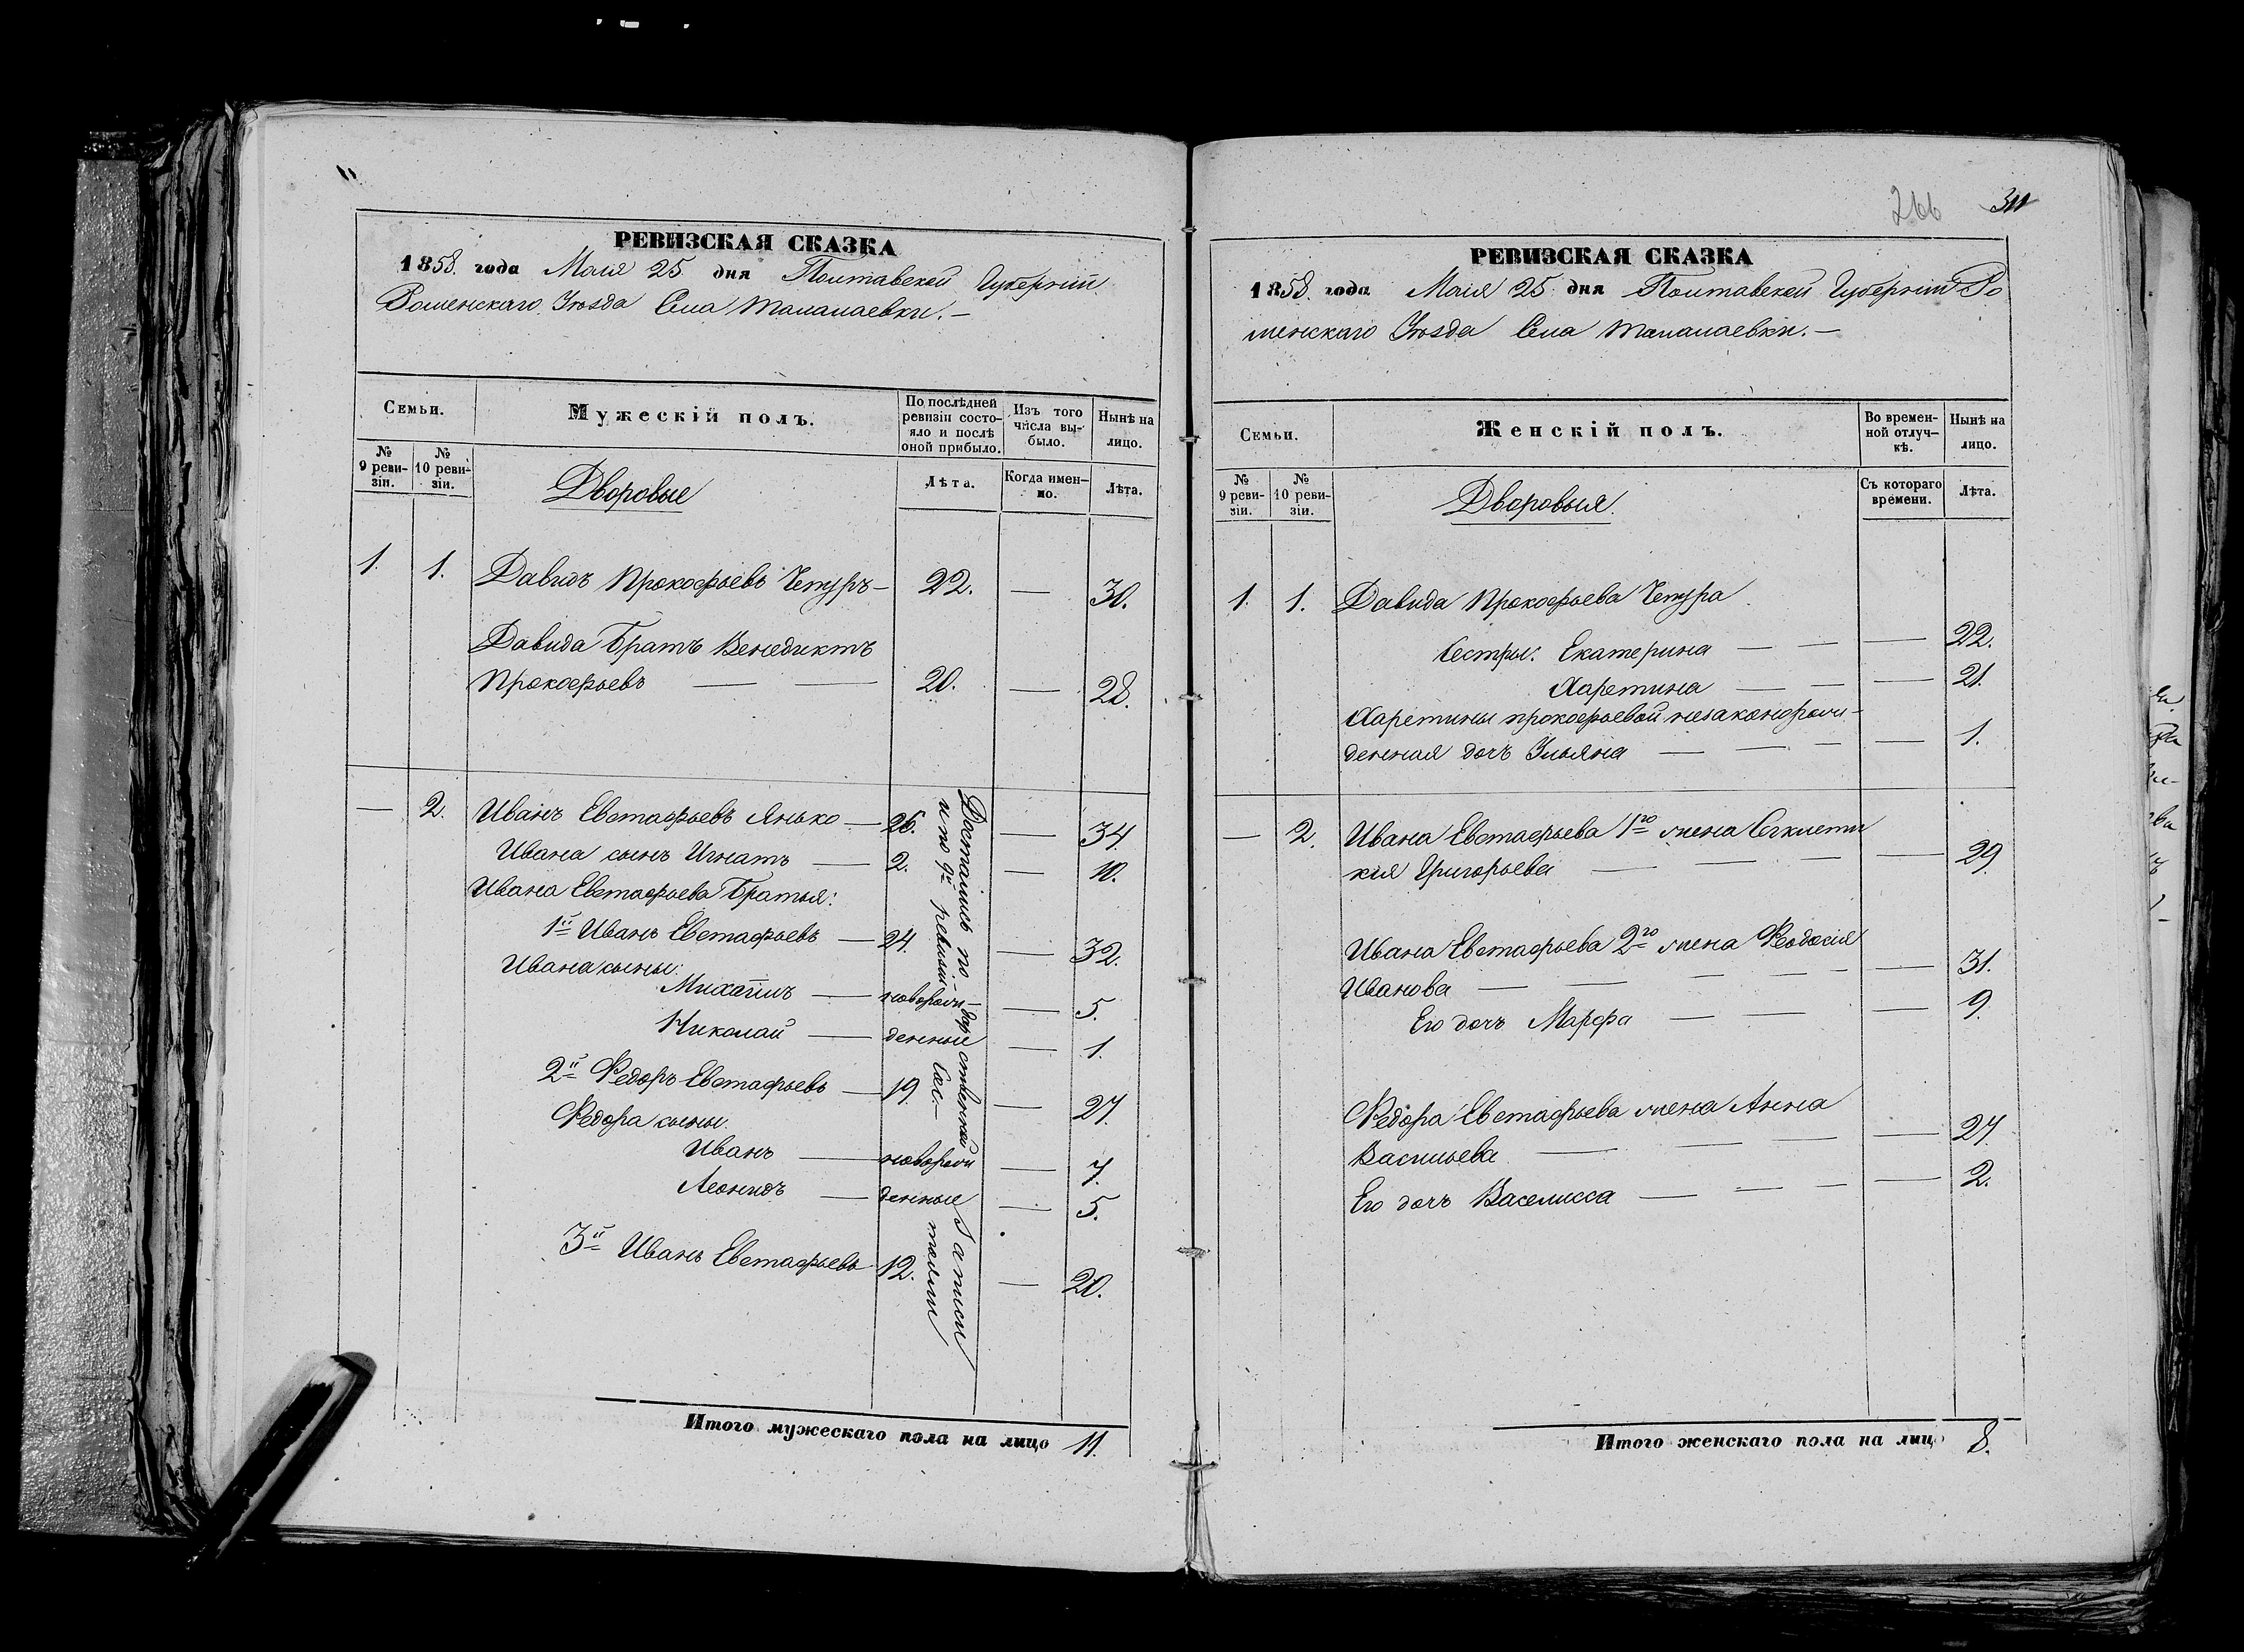 РЕВИЗСКАЯ СКАЗКА
1858. года Маія 25 дня Полтавской Губерніи
Роменскаго Уѣзда Села Талалаевки. —
Семьи.
Мужескій полъ.
По послѣдней ревизіи состояло и послѣ оной прибыло.
Изъ того числа выбыло.
Нынѣ на лицо.
№ 9 ревизіи.
№ 10 ревизіи.
Дворовые
Лѣта.
Когда именно.
Лѣта.
1. 1. Давидъ Прокофьевъ Чепуръ — 22. — 30.
Давида Братъ Венедиктъ
Прокофьевъ — — 20. — 28.
— 2. Иванъ Евстафьевъ Янько — 26. — 34.
Ивана сынъ Игнатъ — 2. — 10.
Ивана Евстафьева Братья:
1й Иванъ Евстафьевъ — 24. — 32.
Ивана сыны:
Михаилъ — новорож- — 5.
Николай — денные — 1.
2й Федоръ Евстафьевъ — 19. — 27.
Федора сыны.
Иванъ — новорож — 7.
Леонидъ — денные — 5.
3й Иванъ Евстафьевъ 12. — 20.
Достались по дарственной записи
и по 9й ревизіи сос- тояли
Итого мужескаго пола на лицо 11.
266 311
РЕВИЗСКАЯ СКАЗКА
1858. года Маія 25 дня Полтавской Губерніи Ро
менскаго Уѣзда Села Талалаевки. —
Семьи.
Женскій полъ.
Во временной отлучкѣ.
Нынѣ на лицо.
№ 9 ревизіи.
№ 10 ревизіи.
Дворовыя.
Съ котораго времени.
Лѣта.
1. 1. Давида Прокофьева Чепура
Сестры: Екатерина — — — 22.
Харетина — — — 21.
Харетины прокофьевой незаконорож-
денная дочъ Ульяна — — — — 1.
— 2. Ивана Евстафьева 1го жена Секлети
кія Григорьева — — — — 29.
Ивана Евстафьева 2го жена Феодосія
Иванова — — — — — 31.
Его дочъ Марфа — — — — 9.
Федора Евстафьева жена Анна
Васильева — — — — — 27
Его дочъ Васелисса — — — — 2.
Итого женскаго пола на лицо 8.